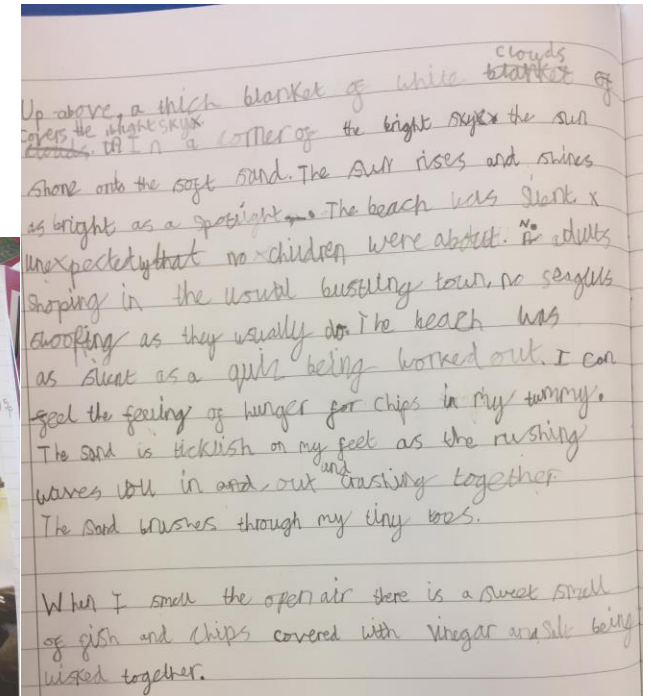 clouds
Up above, a thick blanket of white blanket of
covers the bright sky.
clouds. In a corner of the bright sky the sun
shone onto the soft sand. The sun rises and shines
as bright as a spotlight. The beach was silent x
unexpectedly that no children were about. No adults
shoping in the usual bustling town, no seagulls
swooping as they usually do. The beach was
as silent as a quiz being worked out. I can
feel the feeling of hunger for chips in my tummy.
The sand is ticklish on my feet as the rushing
and
waves roll in and out crashing together.
The sand brushes through my tiny toes.
When I smell the open air there is a sweet smell
of fish and chips covered with vinegar and salt being
wisked together.